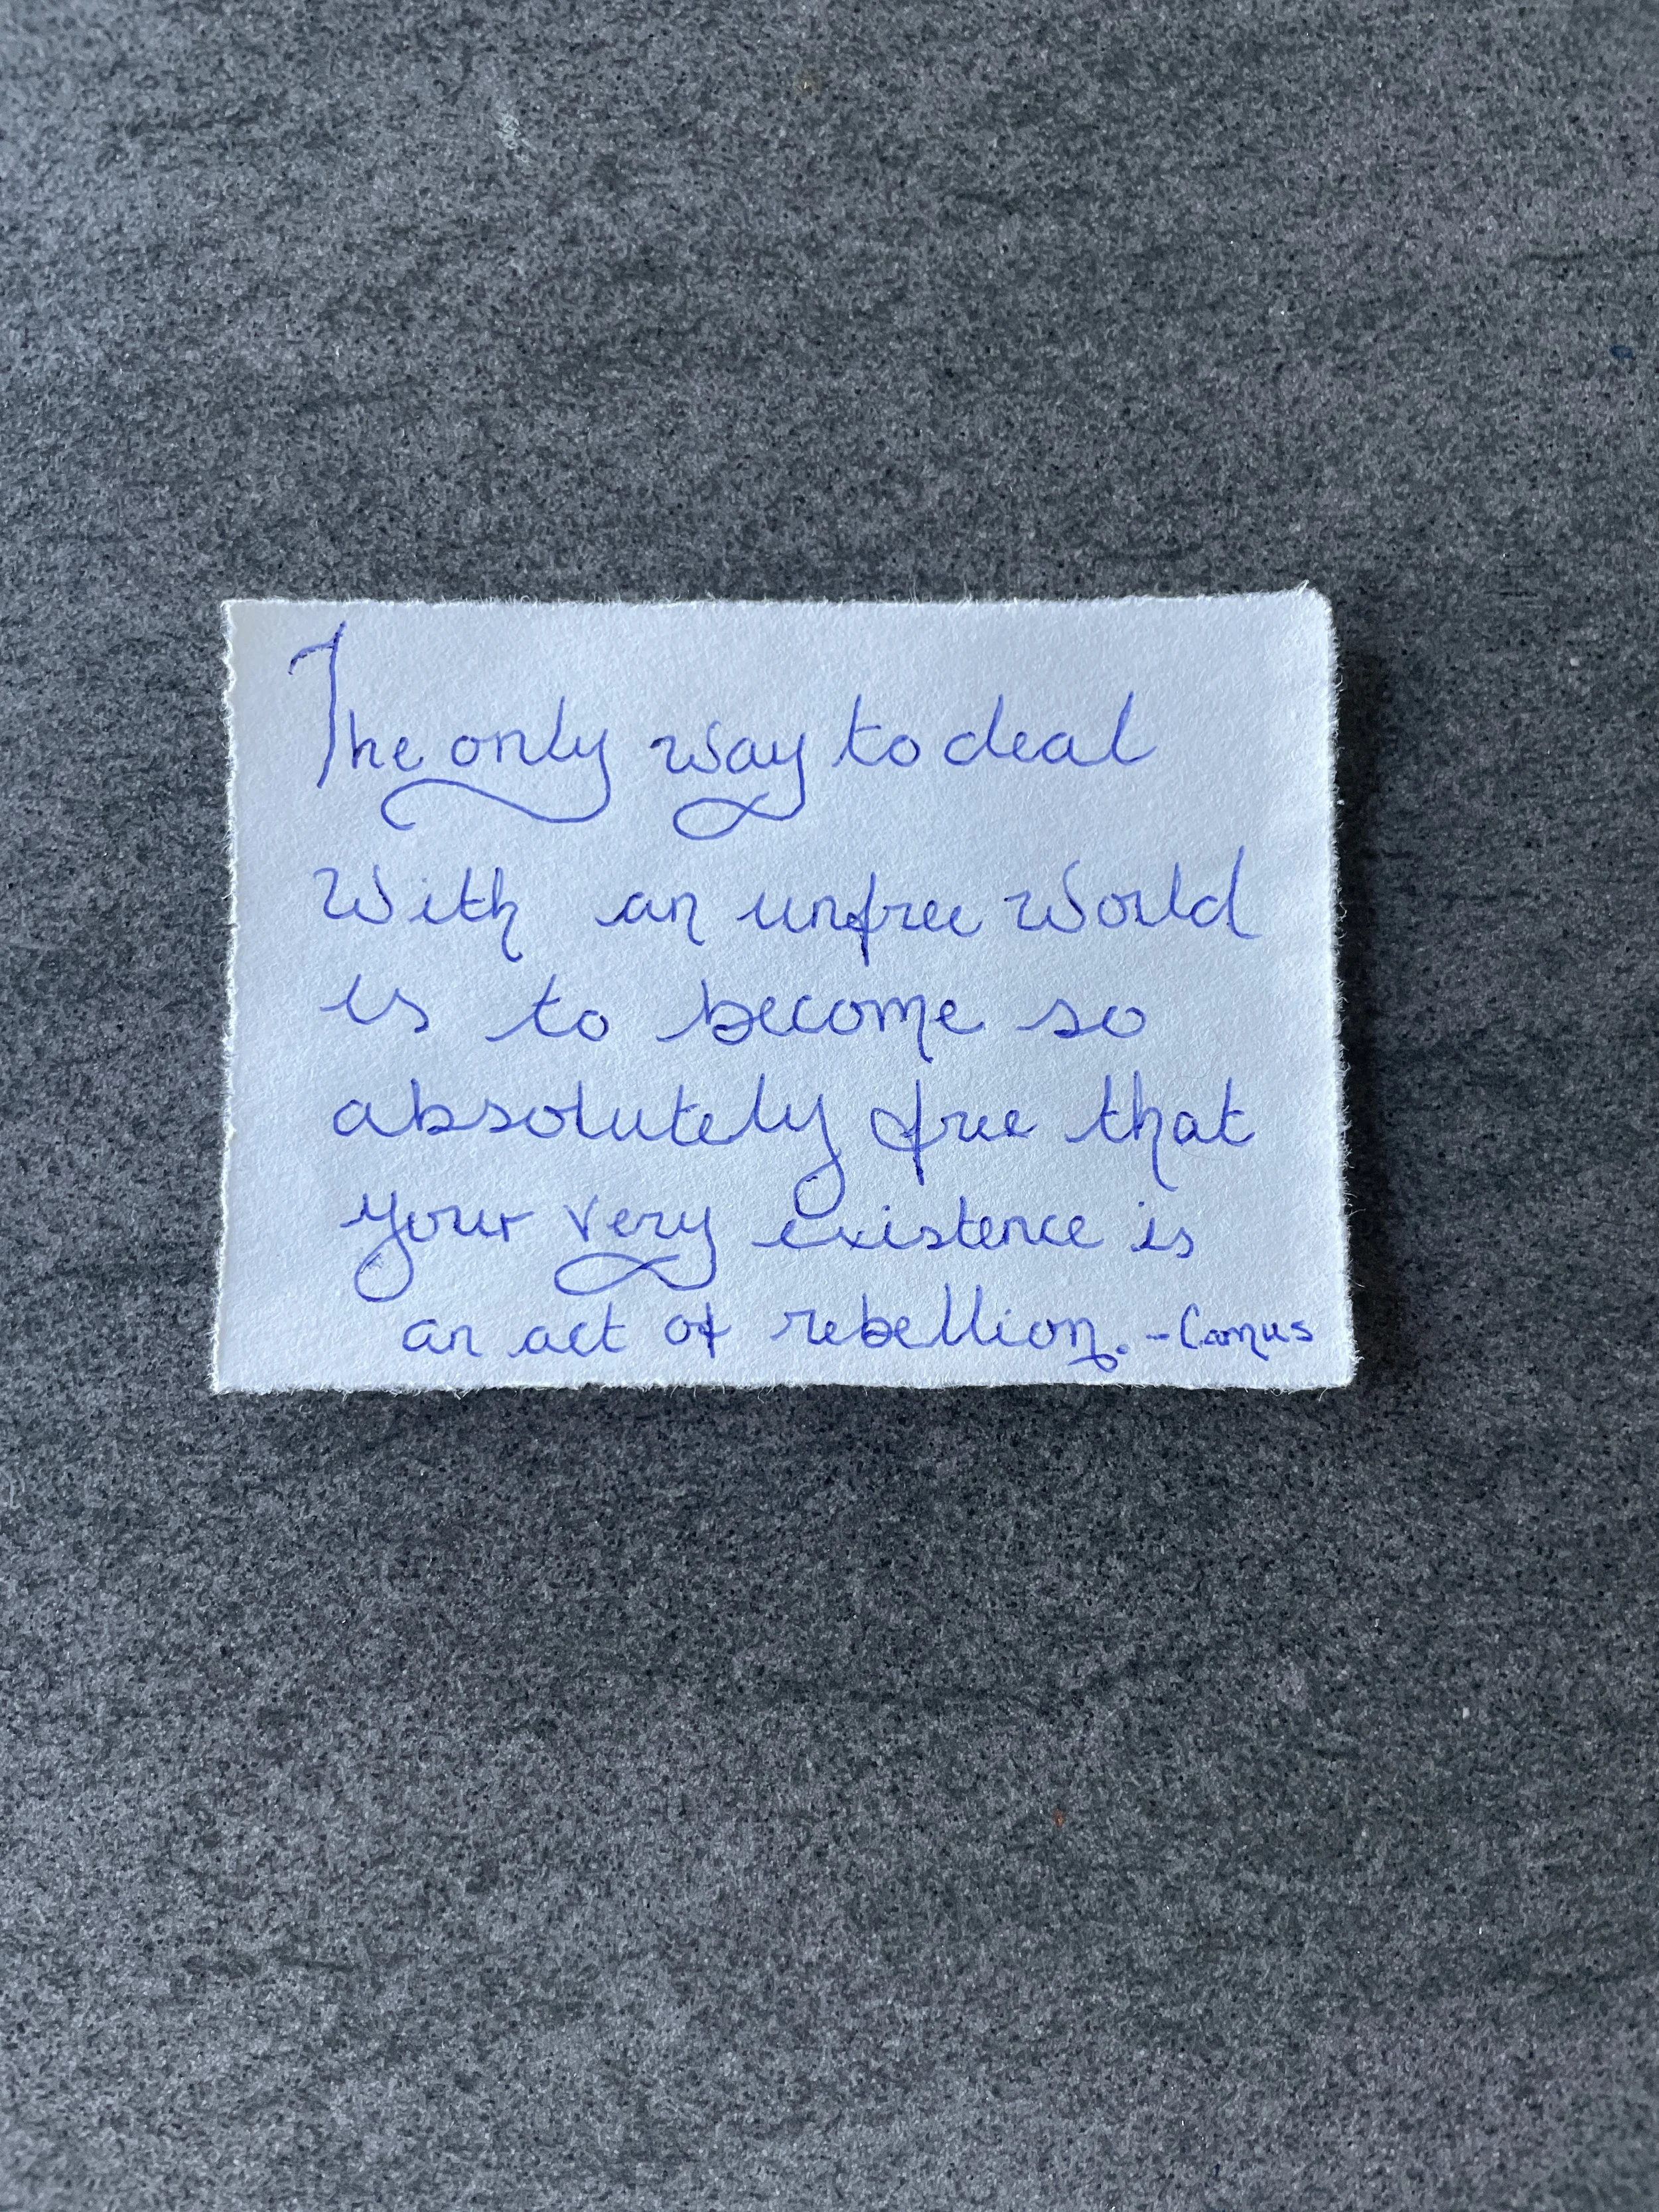 The only way to deal
With an unfree World
is to become so
absolutely free that
your very existence is
an act of rebellion. - Camus